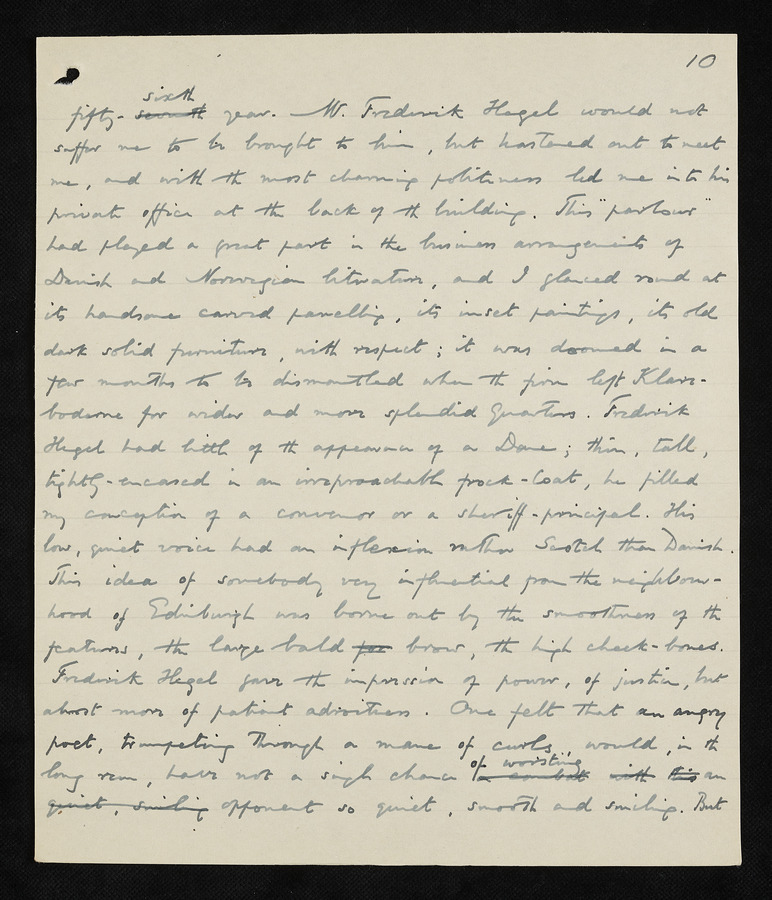 10
sixth
fifty-seventh year. Mr. Frederik Hegel would not
suffer me to be brought to him, but hastened out to meet
me, and with the most charming politeness led me into his
private office at the back of the building. This "parlour"
had played a great part in the business arrangements of
Danish and Norwegian literature, and I glanced round at
its handsome carved panelling, its inset paintings, its old
dark solid furniture, with respect; it was doomed in a
few months to be dismantled when the firm left Klare-
boderne for wider and more splendid quarters. Frederik
Hegel had little of the appearance of a Dane; thin, tall,
tightly-encased in an irreproachable frock-coat, he filled
my conception of a convenor or a sheriff-principal. His
low, quiet voice had an inflexion rather Scotch than Danish.
This idea of somebody very influential from the neighbour-
hood of Edinburgh was borne out by the smoothness of the
features, the large bald for brow, the high cheek-bones.
Frederik Hegel gave the impression of power, of justice, but
almost more of patient adroitness. One felt that an angry
poet, trumpeting through a mane of curls, would, in the
of worsting
long run, have not a single chance a combat with this an
quiet, smiling opponent so quiet, smooth and smiling. But